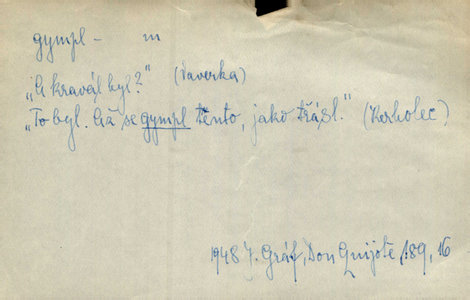 gympl – m
„A kravál byl?" (Vaverka)
„To byl. Až se gympl tento, jako třásl." (Kerholec)
1948 J. Gráf, Don Quijote, 189, 16